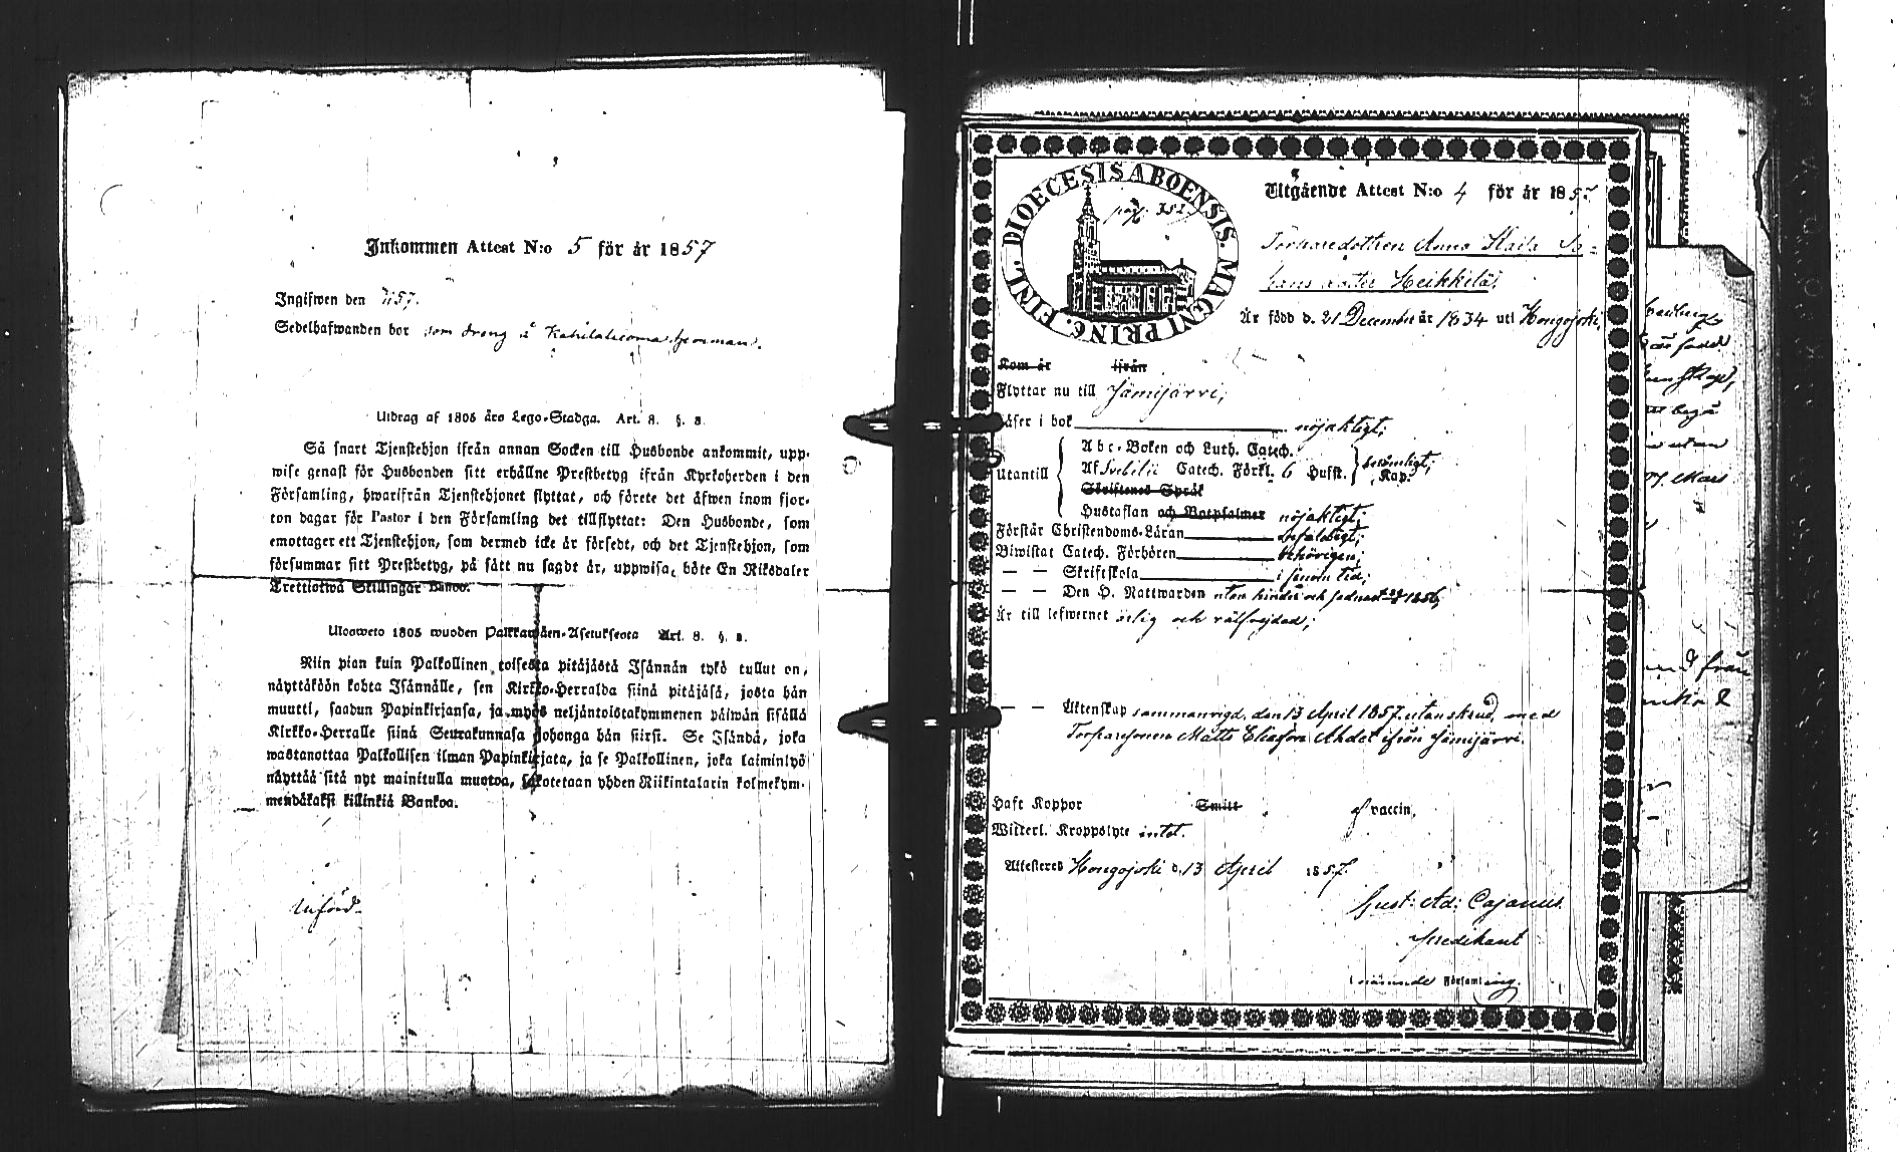 Inkommen Attest N:o 5 för år 1857
Ingifwen den 1857.
Sedelhafwanden bor som dreng å
Utdrag af 1805 års Lego-Stadga. Art. 8. §. 2.
Så snart Tjenstehjon ifrån annan Socken till Husbonde ankommit, upp-
wise genast för Husbonden sitt erhållne Prestbetyg ifrån Kyrkoherden i den
Församling, hwarifrån Tjenstehjonet flyttat, och förete det äfwen inom fjor-
ton dagar för Pastor i den Församling det tillflyttat: Den Husbonde, som
emottager ett Tjenstehjon, som dermed icke är försedt, och det Tjenstehjon, som
försummar sitt Prestbetyg, på sätt nu sagdt är, uppwisa, böte En Riksdaler
Trettiotwå Skillingar Banco.
Ulosweto 1805 wuoden Palkkawäen-Asetuksesta Art. 8. §. 2.
Niin pian kuin Palkollinen toisesta pitäjästä Isännän tykö tullut on,
näyttäköön kohta Isännälle, sen Kirkko-Herralda siinä pitäjäsä, josta hän
muutti, saadun Papinkirjansa, ja myös neljäntoistakymmenen päiwän sisällä
Kirkko-Herralle siinä Seurakunnasa johonga hän siirsi. Se Isändä, joka
wastanottaa Palkollisen ilman Papinkirjata, ja se Palkollinen, joka laiminlyö
näyttää sitä nyt mainitulla muotoa, sakotetaan yhden Riikintalarin kolmekym-
mendäkaksi killinkiä Bankoa.
Införd.
DIOECESIS ABOENSIS. MAGNI PRINC. FINL.
pag. 352.
Utgående Attest N:o 4 för år 1857
Torparedottren Anna Kaisa Jo-
hans doter Heikkilä,
Är född d. 21 December år 1834 uti Hongojoki,
Kom år ifrån
Flyttar nu till Jämijärvi,
Läser i bok nöjaktigt,
Utantill
Abc-Boken och Luth. Catech.
Af Svebilii Catech. Förkl. 6 Hufst. Kap. berömligt,
Skriftenes Språk
Hustaflan och Botpsalmer nöjaktigt,
Förstår Christendoms-Läran enfaldigt,
Biwistat Catech. Förhören behörigen,
— — Skriftskola i sinom tid,
— — Den H. Nattwarden utan hinder och sednast 1856,
Är till lefwernet ärlig och rälfrejdad,
— — Äktenskap sammanvigd, den 13 April 1857, utan skrud, med
Torparesonen Matts Eliasson Ahdet ifrån Jämijärvi.
Haft Koppor Smitt af vaccin,
Witterl. Kroppslyte intet.
Attesteras Hongojoki d. 13 April 1857.
Gust: Ad: Cajanus.
Predikant
i nämnde Församling.